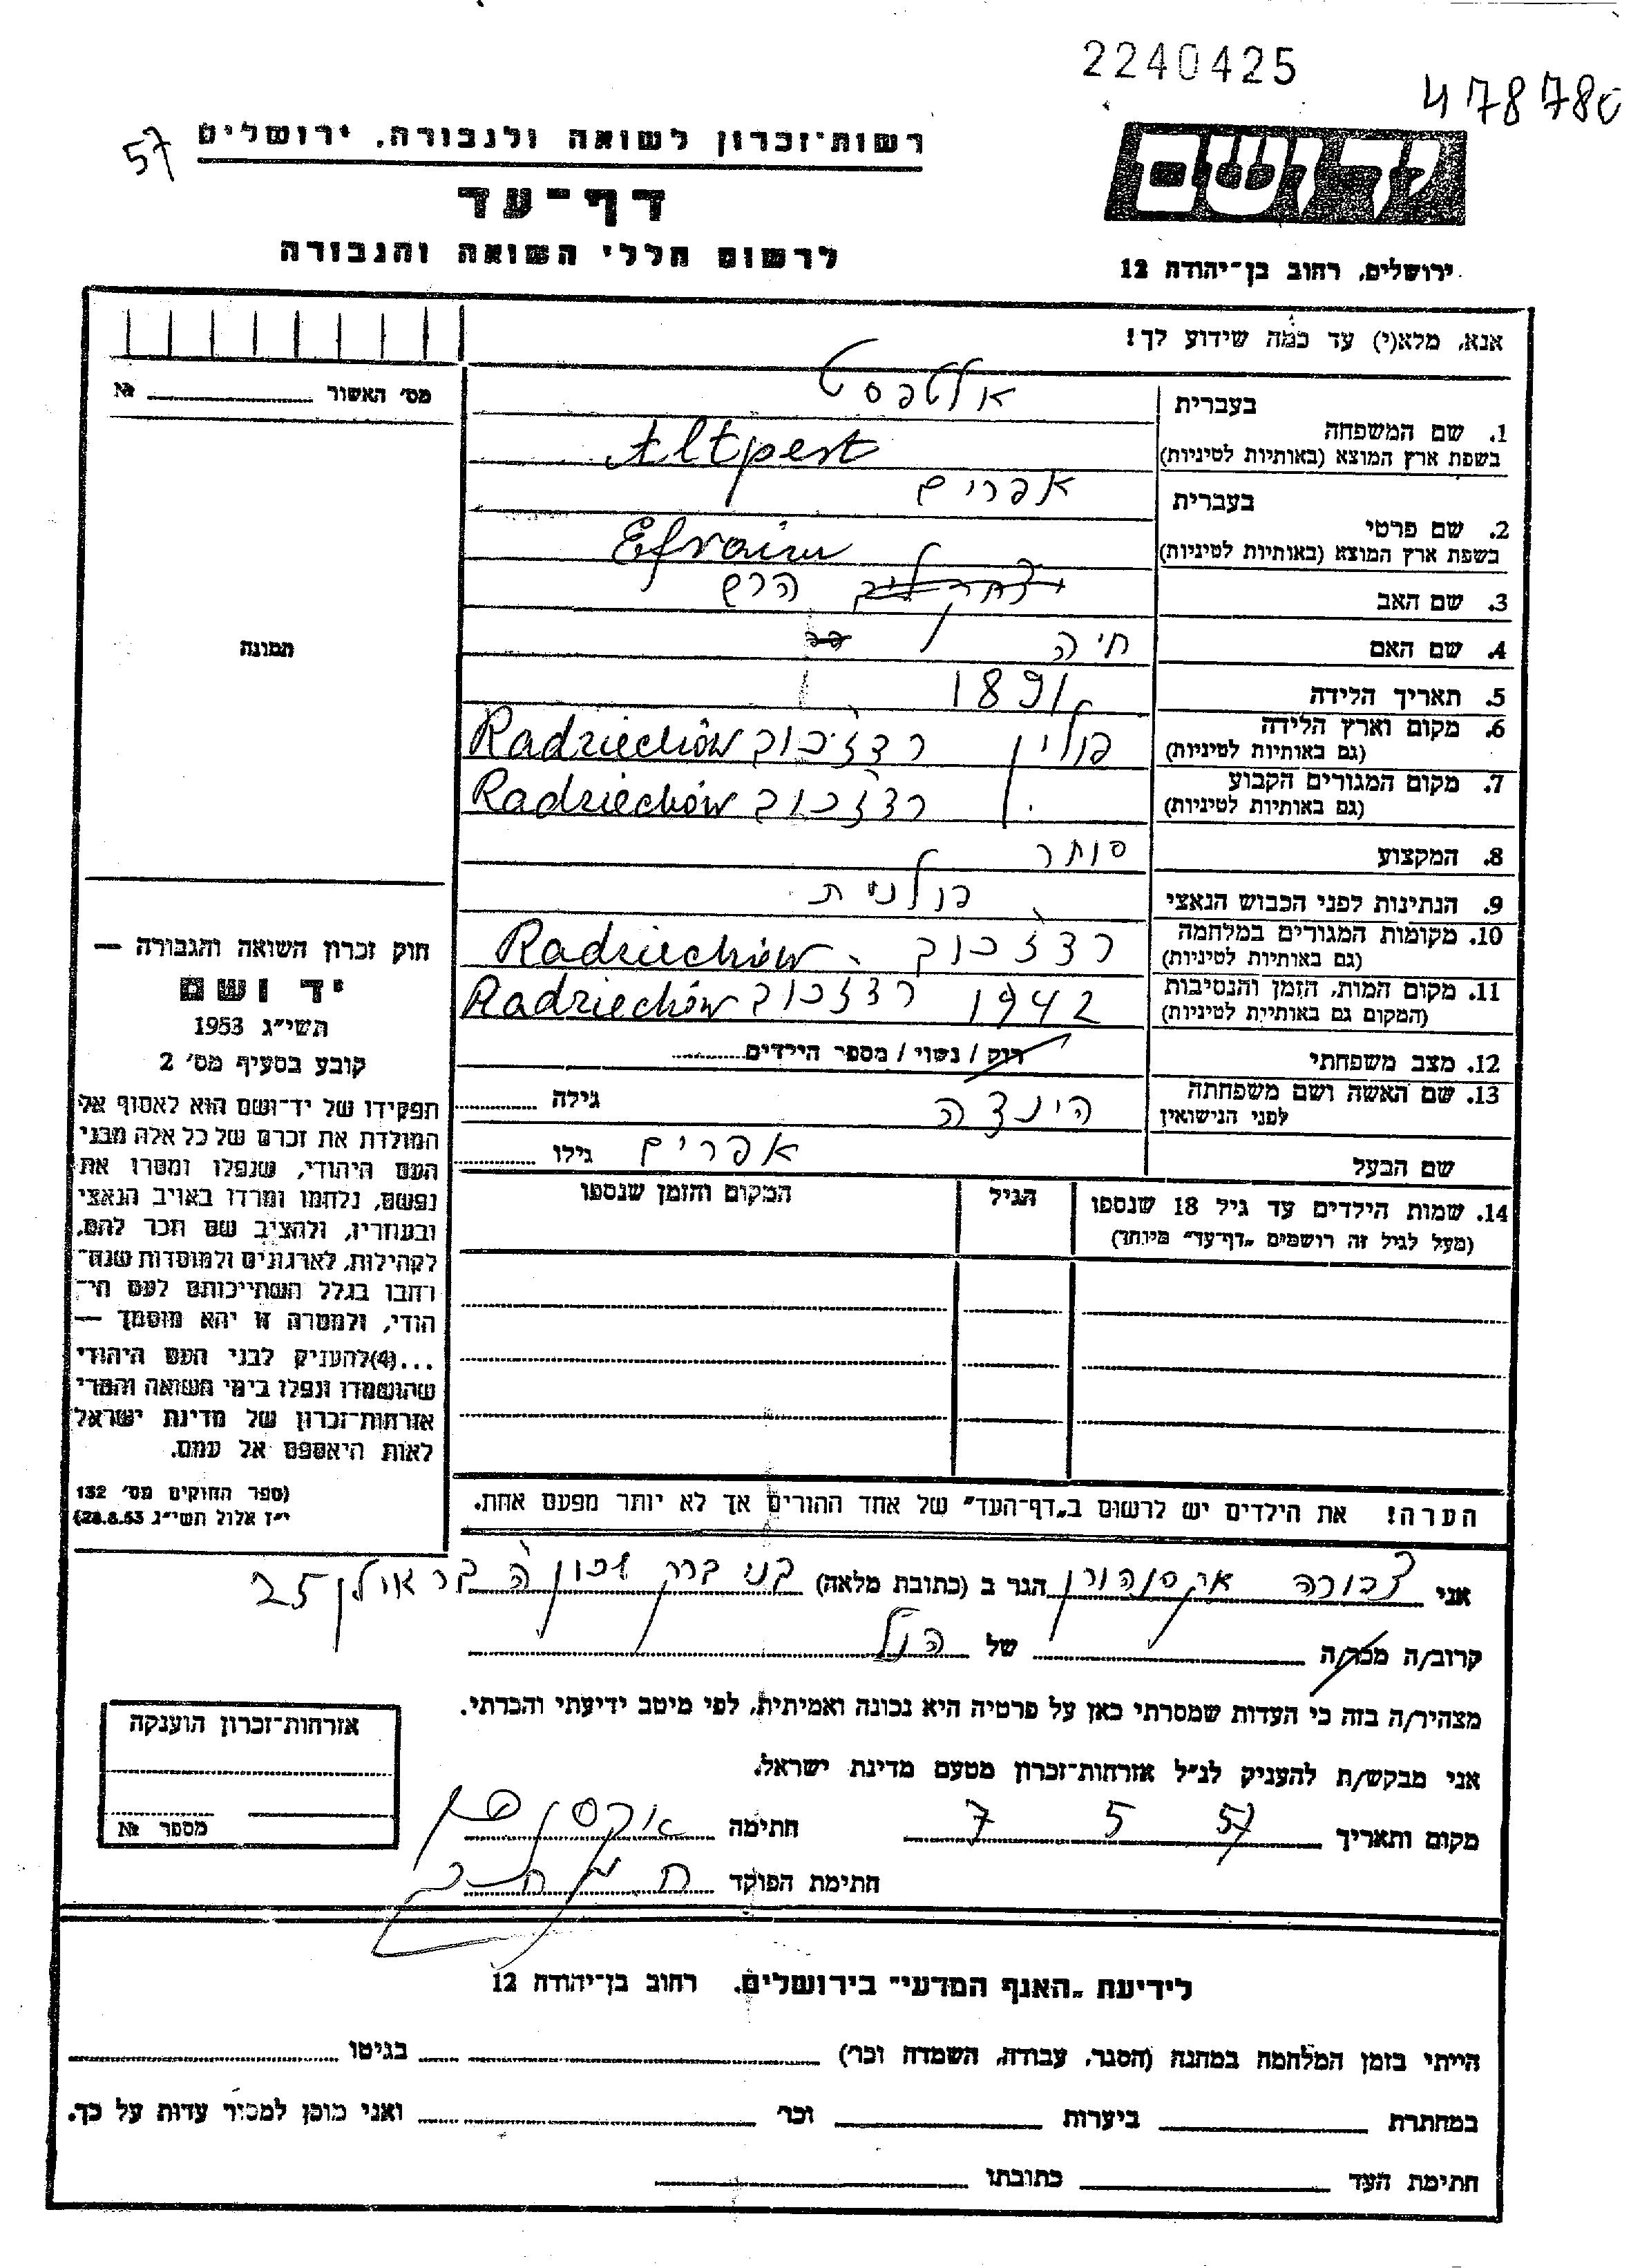 2240425
478780
57
רשות־זכרון לשואה ולגבורה, ירושלים
דף־עד
לרשום חללי השואה והגבורה
יד ושם
ירושלים, רחוב בן־יהודה 12
אנא, מלא(י) עד כמה שידוע לך!
מס׳ האשור № 
בעברית אלטפסט
1. שם המשפחה
בשפת ארץ המוצא (באותיות לטיניות) Altpest
בעברית אפרים
2. שם פרטי
בשפת ארץ המוצא (באותיות לטיניות) Efraim
3. שם האב הרש
4. שם האם חיה
תמונה
5. תאריך הלידה 1891
6. מקום וארץ הלידה
(גם באותיות לטיניות) פולין רדזיכוב Radziechów
7. מקום המגורים הקבוע
(גם באותיות לטיניות) רדזיכוב Radziechów
8. המקצוע סוחר
9. הנתינות לפני הכבוש הנאצי פולנית
10. מקומות המגורים במלחמה
(גם באותיות לטיניות) רדזיכוב - Radziechów
11. מקום המות, הזמן והנסיבות
(המקום גם באותיות לטיניות) 1942 רדזיכוב Radziechów
12. מצב משפחתי רוק / נשוי / מספר הילדים
13. שם האשה ושם משפחתה
לפני הנישואין הינצה גילה
שם הבעל אפרים גילו
14. שמות הילדים עד גיל 18 שנספו הגיל המקום והזמן שנספו
(מעל לגיל זה רושמים „דף־עד״ מיוחד)
חוק זכרון השואה והגבורה —
יד ושם
תשי״ג 1953
קובע בסעיף מס׳ 2
תפקידו של יד־ושם הוא לאסוף אל
המולדת את זכרם של כל אלה מבני
העם היהודי, שנפלו ומסרו את
נפשם, נלחמו ומרדו באויב הנאצי
ובעוזריו, ולהציב שם וזכר להם,
לקהילות, לארגונים ולמוסדות שנח־
רבו בגלל השתייכותם לעם הי־
הודי, ולמטרה זו יהא מוסמך —
...(4)להעניק לבני העם היהודי
שהושמדו ונפלו בימי השואה והמרי
אזרחות־זכרון של מדינת ישראל
לאות היאספם אל עמם.
(ספר החוקים מס׳ 132
י״ז אלול תשי״ג 28.8.53)
הערה! את הילדים יש לרשום ב„דף־העד״ של אחד ההורים אך לא יותר מפעם אחת.
אני דבורה אקסנהורן הגר ב (כתובת מלאה) בני ברק שכון ה 25
קרוב/ה מכר/ה של הנ״ל
מצהיר/ה בזה כי העדות שמסרתי כאן על פרטיה היא נכונה ואמיתית, לפי מיטב ידיעתי והכרתי.
אני מבקש/ת להעניק לנ״ל אזרחות־זכרון מטעם מדינת ישראל.
אזרחות־זכרון הוענקה
מספר №
מקום ותאריך 7 5 57 חתימה
חתימת הפוקד
לידיעת „האגף המדעי״ בירושלים, רחוב בן־יהודה 12
הייתי בזמן המלחמה במחנה (הסגר, עבודה, השמדה וכר׳) בגיטו
במחתרת ביערות וכר׳ ואני מוכן למסור עדות על כך.
חתימת העד כתובתו